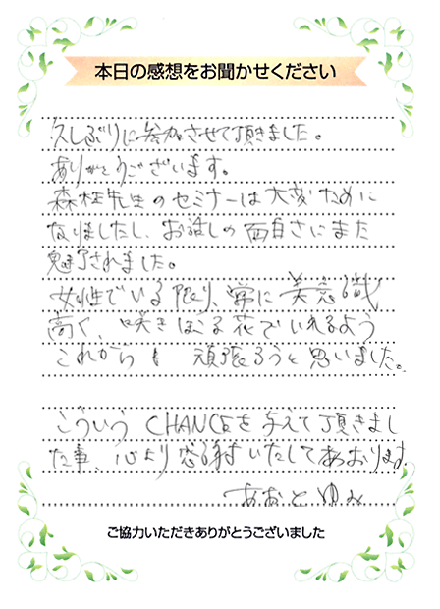 本日の感想をお聞かせください
久しぶりに参加させて頂きました。
ありがとうございます。
森柾先生のセミナーは大変ために
なりましたし、お話しの面白さにまた
魅了されました。
女性でいる限り、常に美意識
高く、咲きほこる花でいれるよう
これからも 頑張ろうと思いました。
こういうCHANCEを与えて頂きまし
た事、心より感謝いたしてあおります。
あおと ゆみ
ご協力いただきありがとうございました